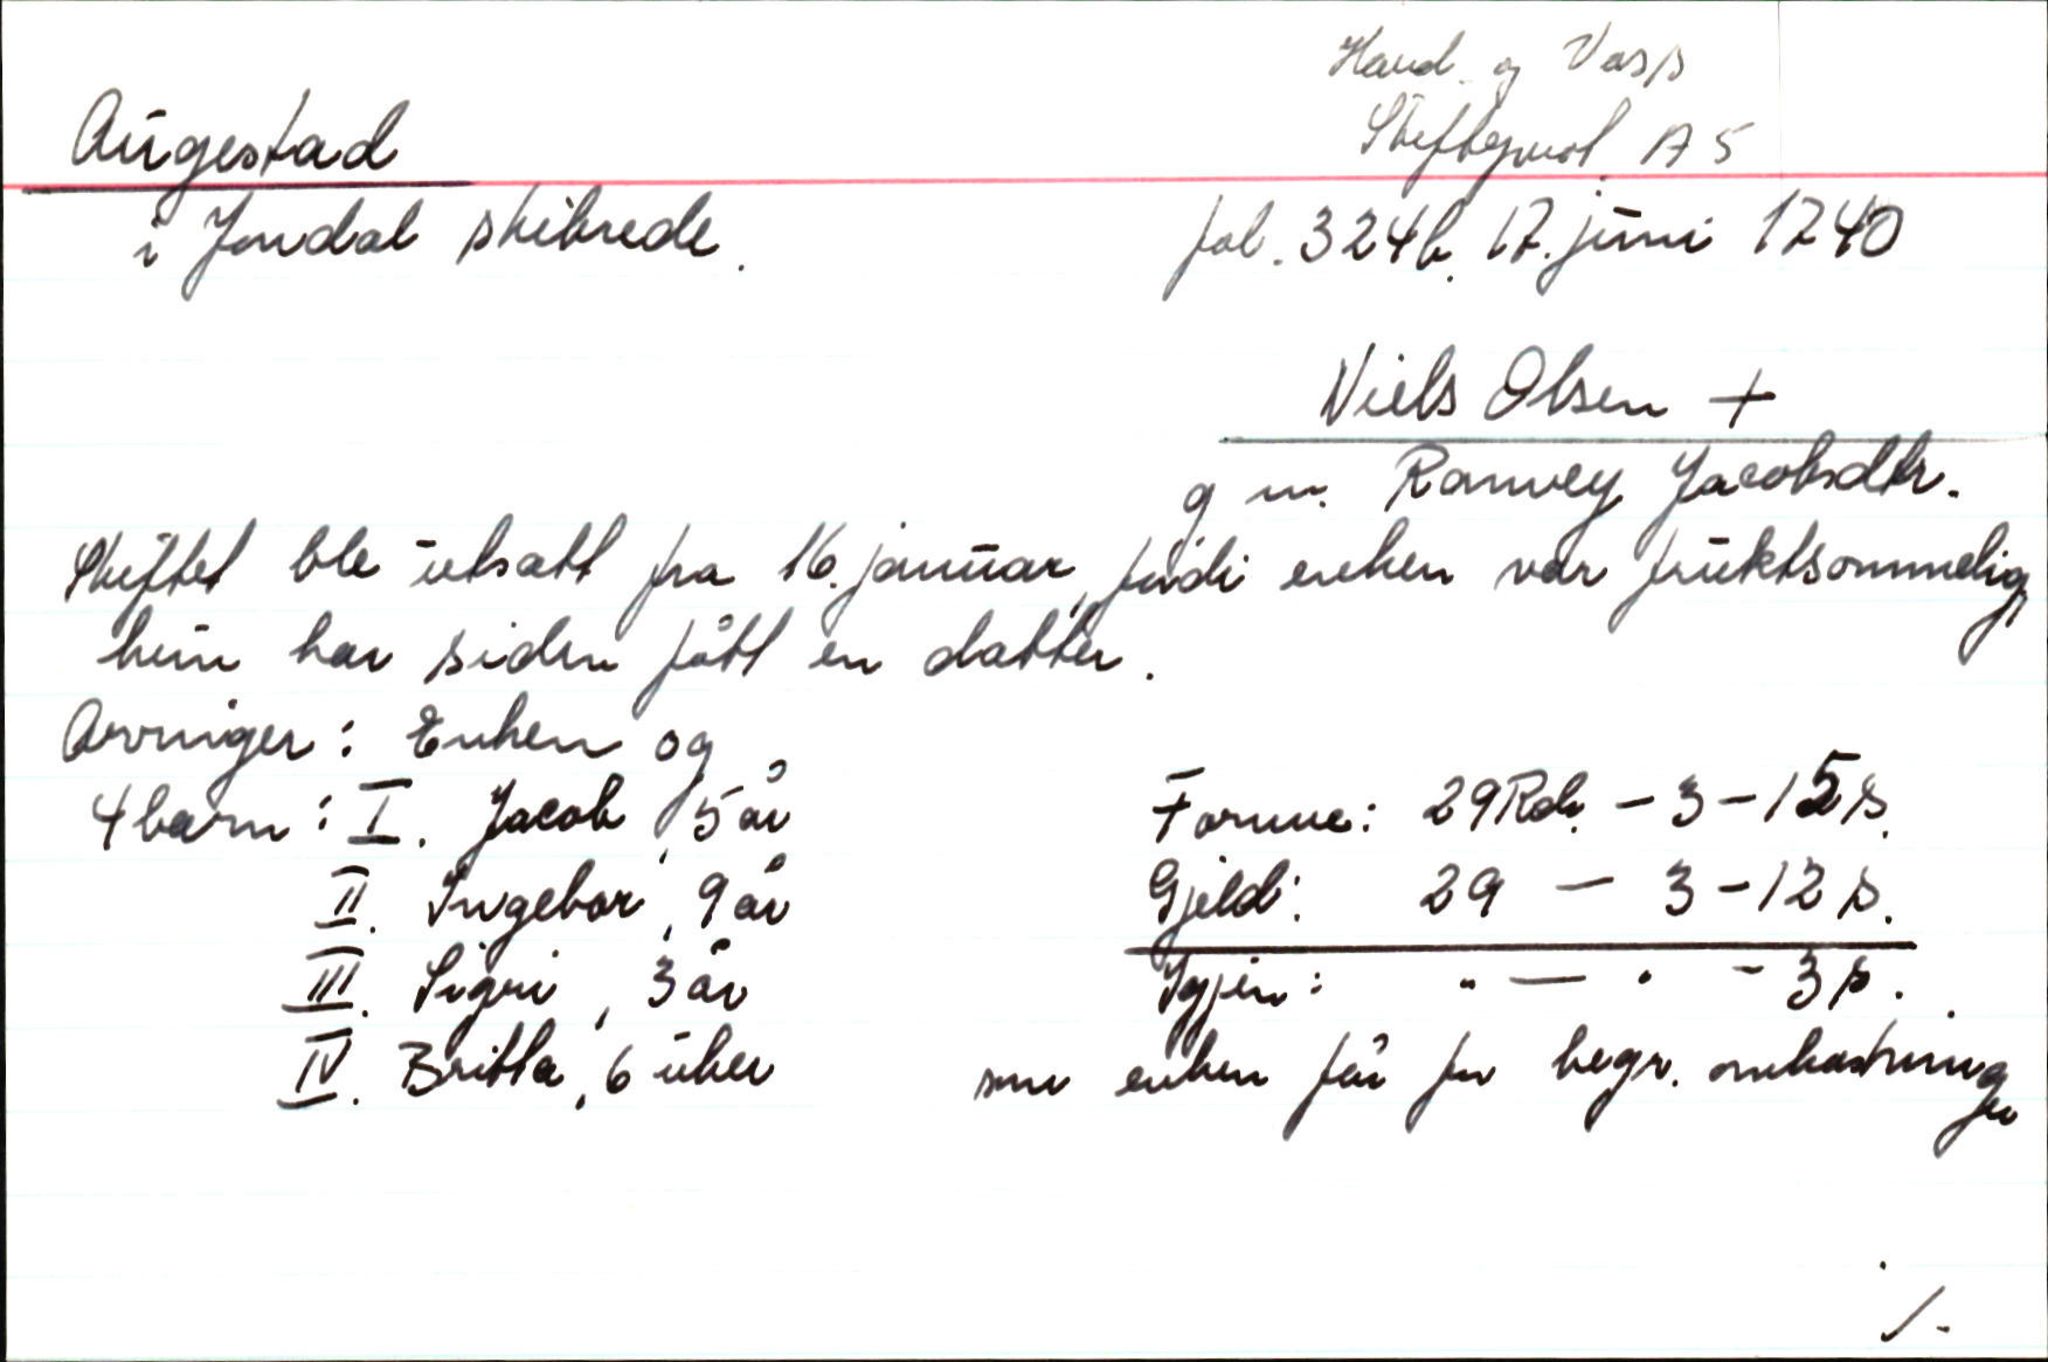 Hard. og Voss
Skifteprot A 5
Augestad
i Jondal skibrede.
fol. 324b. 17. juni 1740
Niels Olsen +
g m. Ranvey Jacobsdtr.
Skiftet ble utsatt fra 16. januar, fordi enken var fruktsommelig,
hun har siden fått en datter.
Arvinger: Enken og
4 barn: I. Jacob, 5 år
II. Ingebor, 9 år
III. Sigri, 3 år
IV. Britta, 6 uker
Formue: 29 Rdr. - 3 - 15 s.
Gjeld: 29 - 3 - 12 s.
Igjen: " - " - 3 s.
som enken får for begr. omkostninger
./-